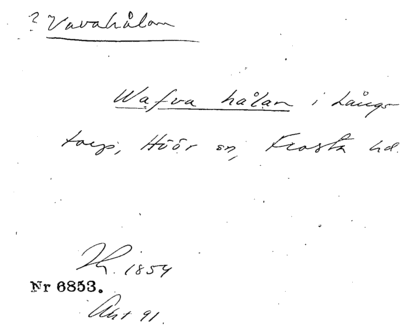 ? Vavahålan
Wafva hålan i Långs-
torp, Höör sn, Frosta hd.
Th. 1854
Nr 6853.
Akt 91.